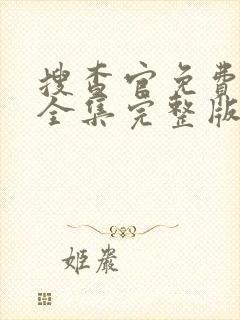 搜查官免費
全集完整版
姬嚴